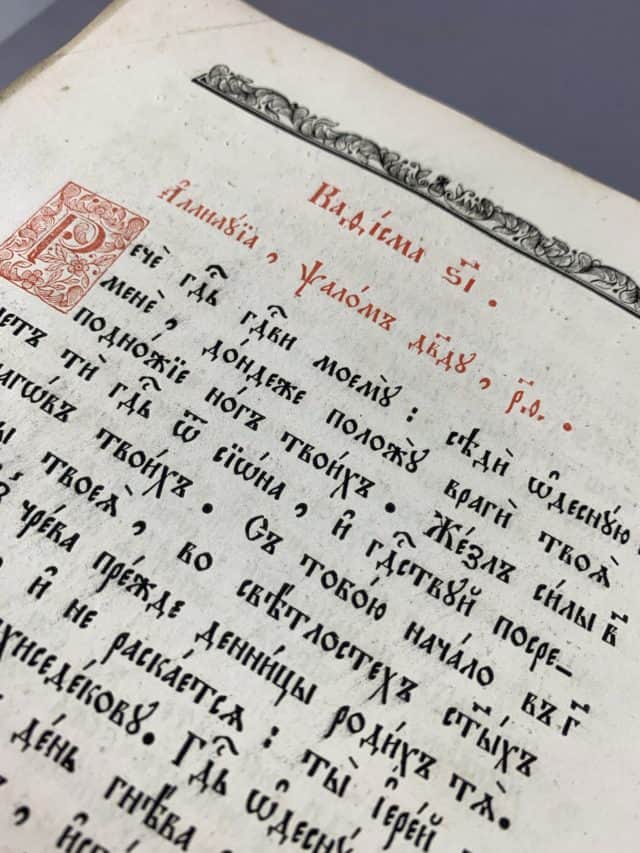 Каѳі́сма ѕ҃і .
А҆ллилꙋ́їа , Ѱало́мъ дв҃дꙋ , р҃.ѳ. .
Речѐ гд҇ь гд҇ви моемꙋ̀ : сѣдѝ ѡ҆деснꙋ́ю
менѐ , до́ндеже положꙋ̀ врагѝ твоѧ̀
подно́жїе но́гъ твои́хъ . Же́злъ си́лы
тѝ гд҇ь ѿ сїѡ́на , и҆ гд҇ствꙋй посре_
врагѡ́въ твои́хъ . Съ тобо́ю нача́ло въ
твоеѧ̀ , во свѣ́тлостехъ ст҃ы́хъ
чре́ва пре́жде денни́цы роди́хъ тѧ̀ .
и҆ не раска́етсѧ : ты̀ і҆ере́й
Гд҇ь ѡ҆деснꙋ́ю
де́нь гнѣ́ва